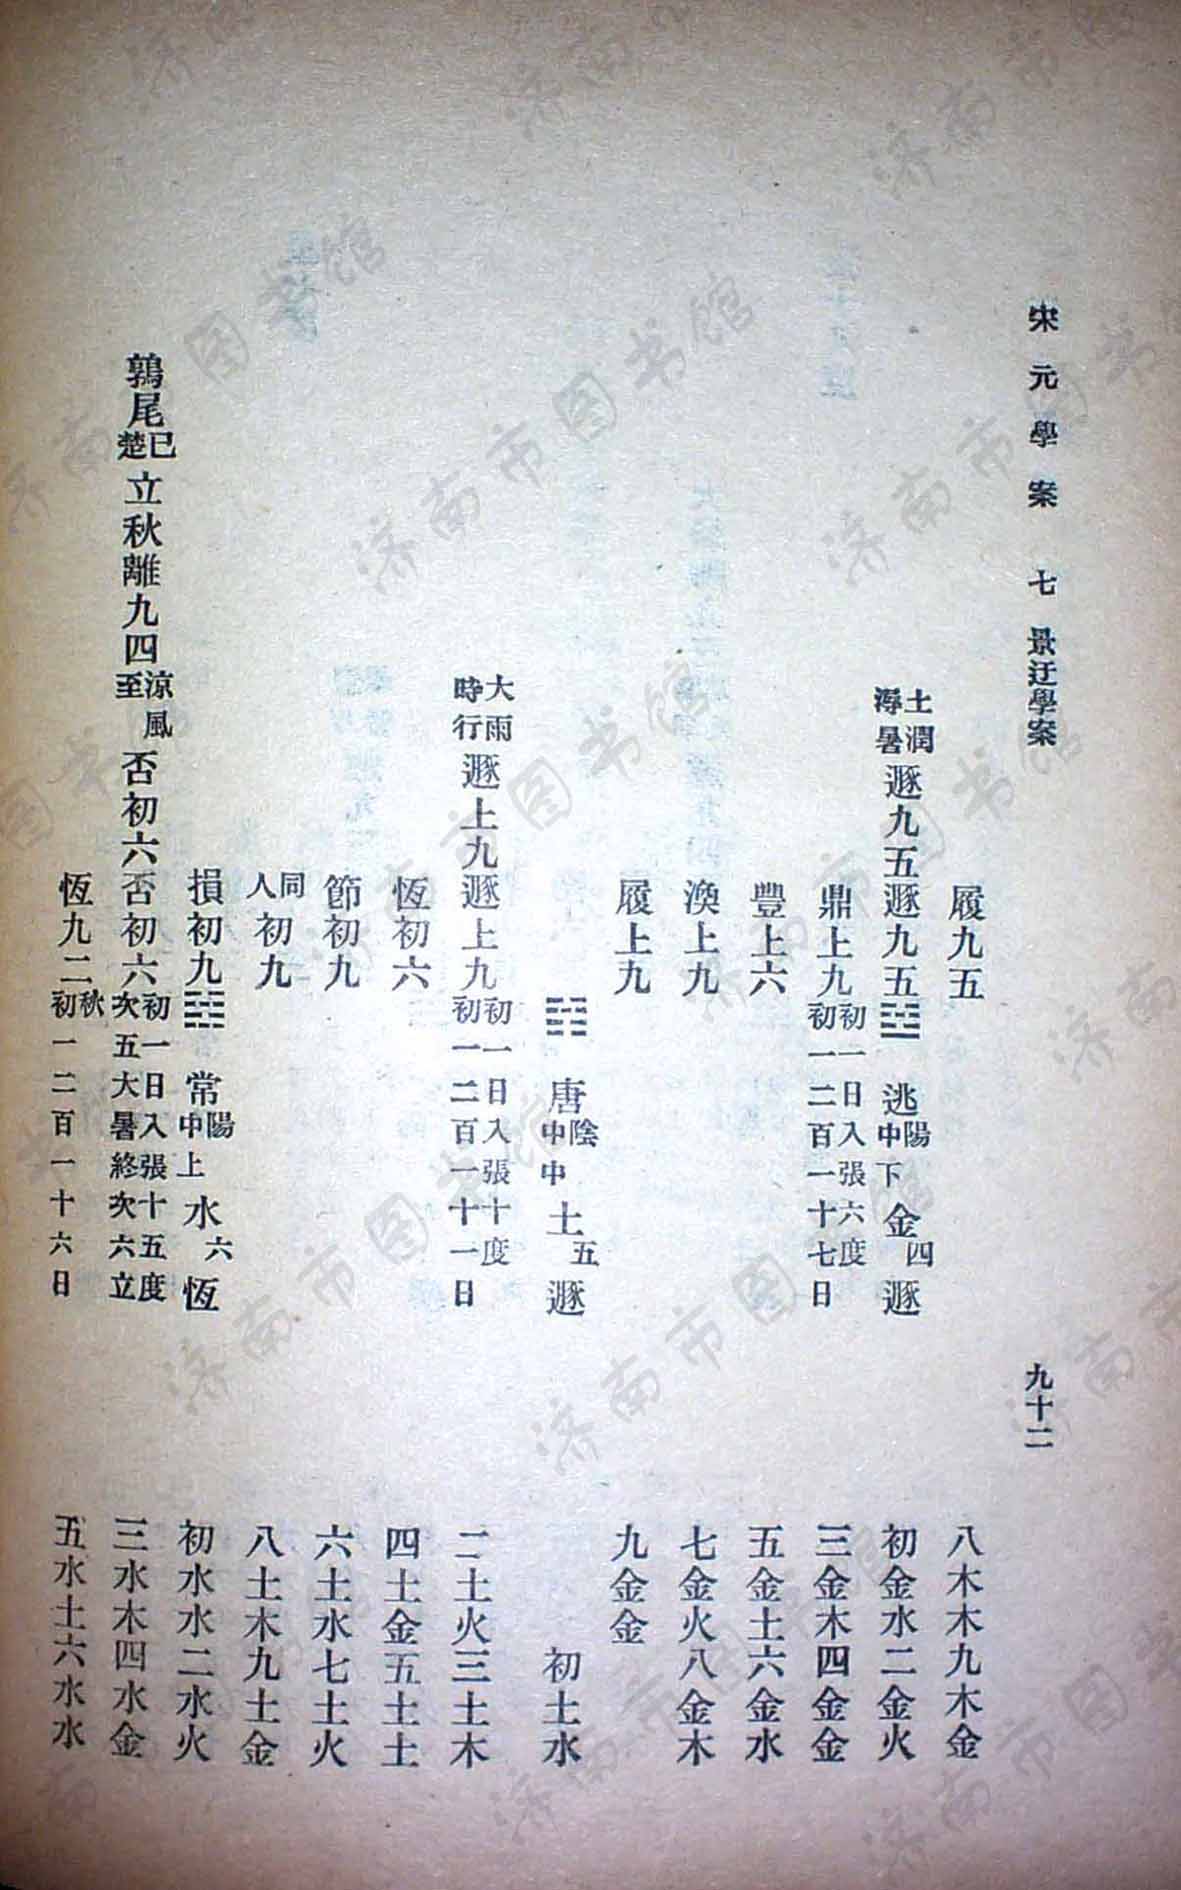 宋元學案 七 景迂學案 九十二
履九五 八木木九木金
土潤溽暑遯九五遯九五 逃陽中下金四遯 初金水二金火
鼎上九初一日入張六度初一二百一十七日 三金木四金金
豐上六 五金土六金水
渙上九 七金火八金木
履上九 九金金
唐陰中中土五遯 初土水
大雨時行遯上九遯上九初一日入張十度初一二百一十一日 二土火三土木
恆初六 四土金五土土
節初九 六土水七土火
同人初九 八土木九土金
損初九 常陽中上水六恆 初水水二水火
鶉尾巳楚立秋離九四涼風至否初六否初六初一日入張十五度次五大暑終次六立 三水木四水金
恆九二秋初一二百一十六日 五水土六水水
济南市图书馆